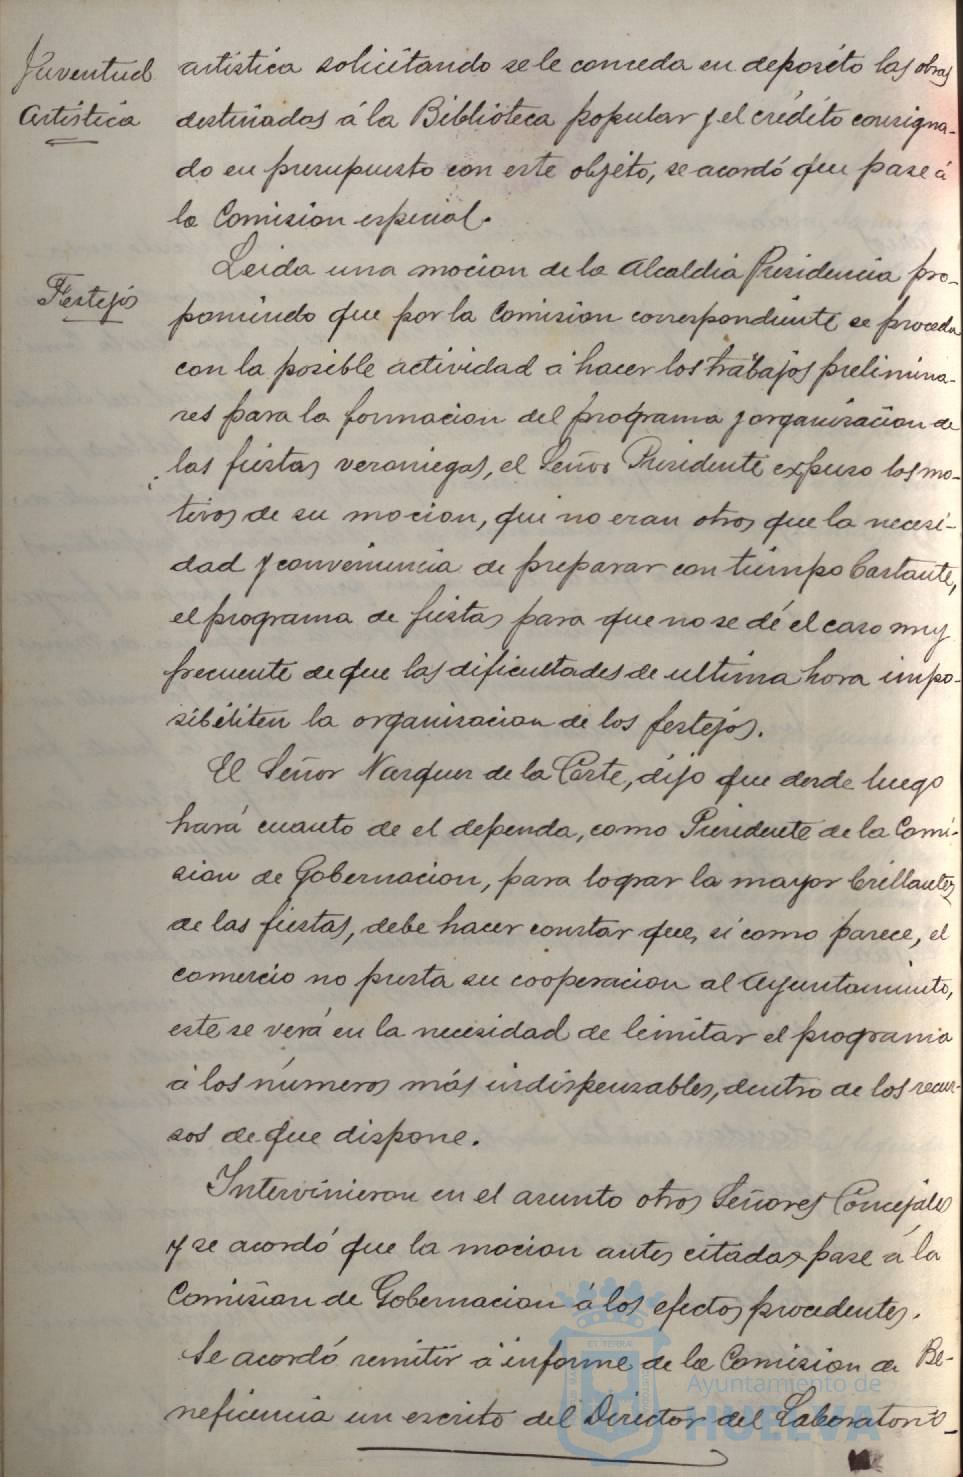 Juventud
Artística
artistica solicitando se le conceda en deposito las obras
destinadas á la Biblioteca popular y el crédito consigna-
do en presupuesto con este objeto, se acordó que pase á
la Comision especial.
Festejos
Leida una mocion de la Alcaldia Presidencia pro-
poniendo que por la Comision correspondiente se proceda
con la posible actividad á hacer los trabajos prelimina-
res para la formacion del programa y organizacion de
las fiestas veraniegas, el Señor Presidente expuso los mo-
tivos de su mocion, que no eran otros que la necesi-
dad y conveniencia de preparar con tiempo bastante,
el programa de fiestas para que no se dé el caso muy
frecuente de que las dificultades de ultima hora impo-
sibiliten la organizacion de los festejos.
El Señor Vazquez de la Corte, dijo que desde luego
hará cuanto de el dependa, como Presidente de la Comi-
sion de Gobernacion, para lograr la mayor brillantez
de las fiestas, debe hacer constar que, si como parece, el
comercio no presta su cooperacion al Ayuntamiento,
este se verá en la necesidad de limitar el programa
á los números más indispensables, dentro de los recur-
sos de que dispone.
Intervinieron en el asunto otros Señores Concejales
y se acordó que la mocion antes citada pase á la
Comision de Gobernacion á los efectos procedentes.
Se acordó remitir á informe de la Comision de Be-
neficencia un escrito del Director del Laboratorio
Ayuntamiento de
HUELVA